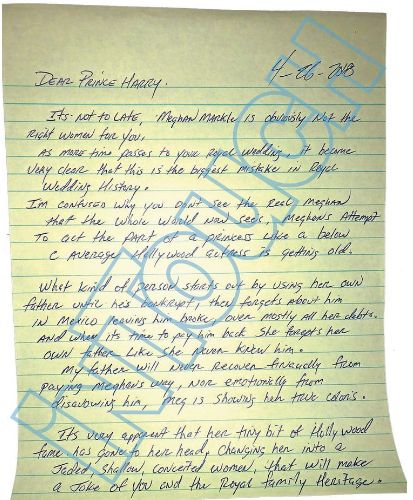 4-26-2018
DEAR PRINCE HARRY.
Its not to LATE, MEGHAN MARKLE is obviously Not the
right women for you.
As more time passes to your Royal Wedding, it became
very clear that this is the biggest mistake in Royal
Wedding History.
I'm confused why you don't see the real Meghan
that the whole world now sees. Meghan's Attempt
To act the part of a princess Like a below
C average Hollywood actress is getting old.
What kind of person starts out by using her own
father until he's bankrupt, then forgets about him
in Mexico leaving him broke, over mostly all her debts.
And when its time to pay him back she forgets her
own father Like she never knew him.
My father will never recover financially from
paying Meghan's way, nor emotionally from
disavowing him, Meg is showing her true colors.
It's very apparent that her tiny bit of Hollywood
fame has gone to her head, changing her into a
Jaded, shallow, conceited women, that will make
a Joke of you and the Royal family Heritage.
INTOUCH